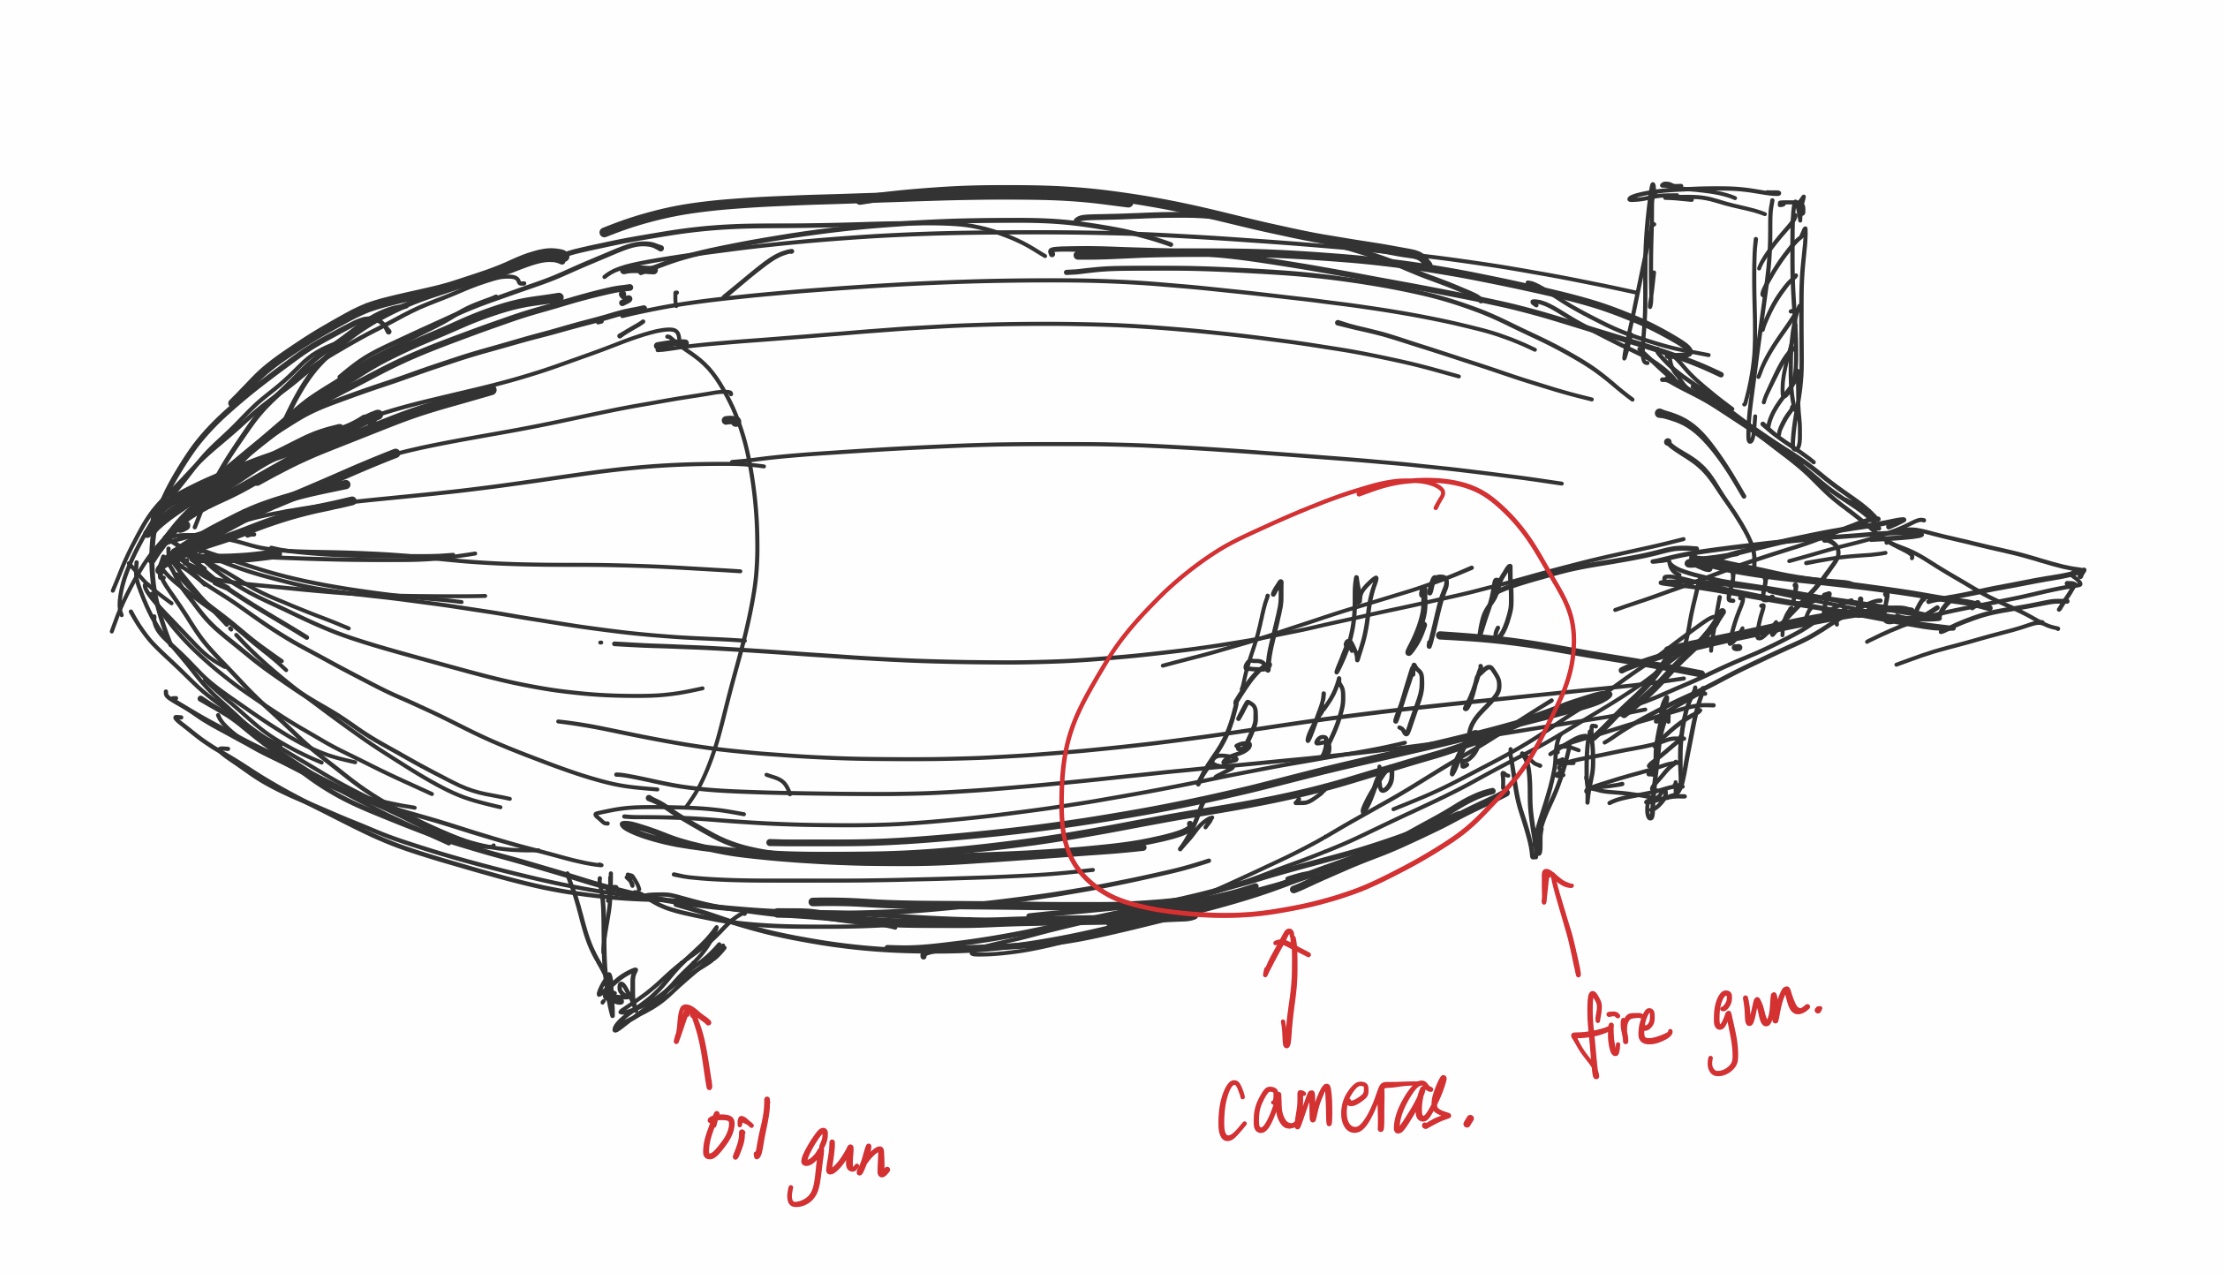 oil gun
cameras.
fire gun.